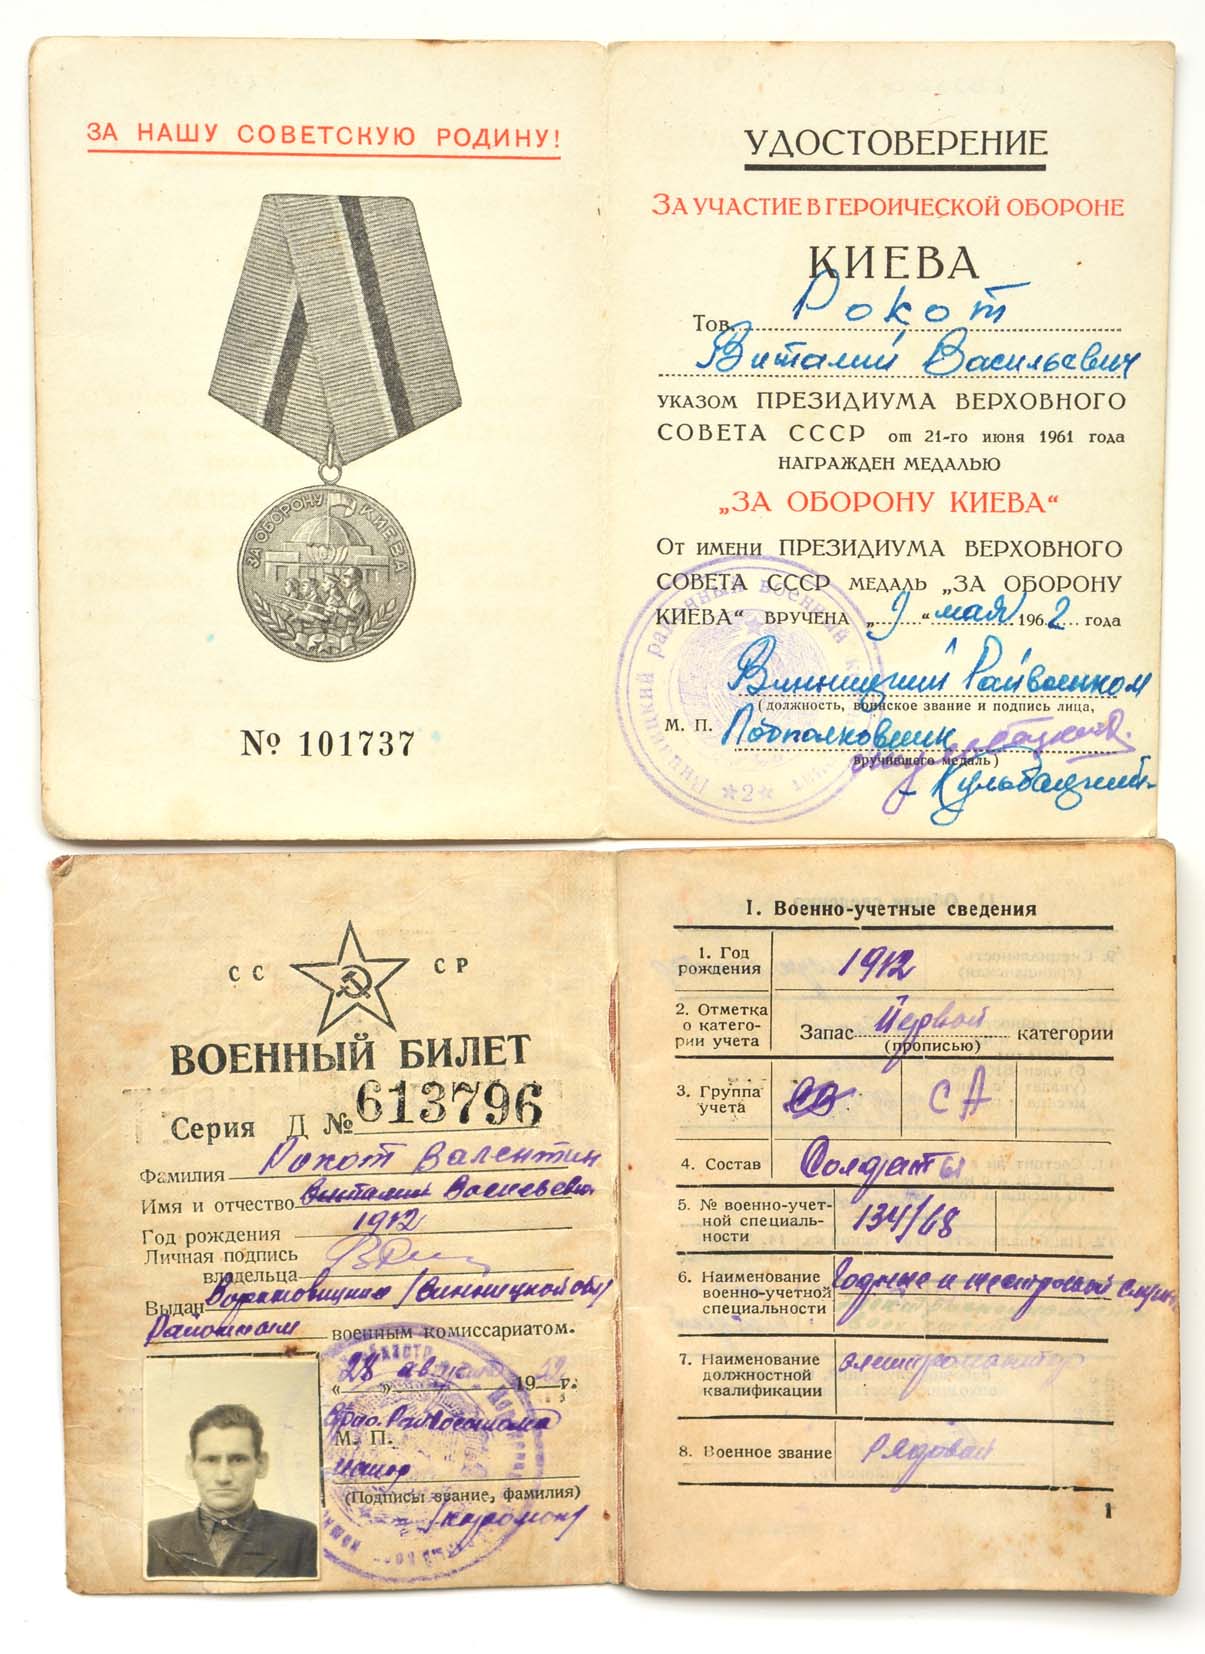 ЗА НАШУ СОВЕТСКУЮ РОДИНУ!
ЗА ОБОРОНУ КИЕВА
№ 101737
УДОСТОВЕРЕНИЕ
ЗА УЧАСТИЕ В ГЕРОИЧЕСКОЙ ОБОРОНЕ
КИЕВА
Тов. Рокот
Виталий Васильевич
УКАЗОМ ПРЕЗИДИУМА ВЕРХОВНОГО
СОВЕТА СССР от 21-го июня 1961 года
НАГРАЖДЕН МЕДАЛЬЮ
„ЗА ОБОРОНУ КИЕВА“
От имени ПРЕЗИДИУМА ВЕРХОВНОГО
СОВЕТА СССР МЕДАЛЬ „ЗА ОБОРОНУ
КИЕВА“ ВРУЧЕНА „9“ мая 1962 года
Винницкий Райвоенком
(должность, воинское звание и подпись лица,
М. П. Подполковник
вручившего медаль)
Кульбацкий
СС СР
ВОЕННЫЙ БИЛЕТ
Серия Д № 613796
Фамилия Рокот Валентин
Имя и отчество Виталий Васильевич
Год рождения 1912
Личная подпись
владельца
Выдан (Винницкой обл)
Районным военным комиссариатом.
«28» августа 19 г.
М. П.
майор
(Подпись звание, фамилия)
I. Военно-учетные сведения
1. Год рождения 1912
2. Отметка о категории учета Запас Первой категории
(прописью)
3. Группа учета СА
4. Состав Солдаты
5. № военно-учетной специальности 134/68
6. Наименование военно-учетной специальности Годные к нестроевой
7. Наименование должностной квалификации электромонтер
8. Военное звание Рядовой
1